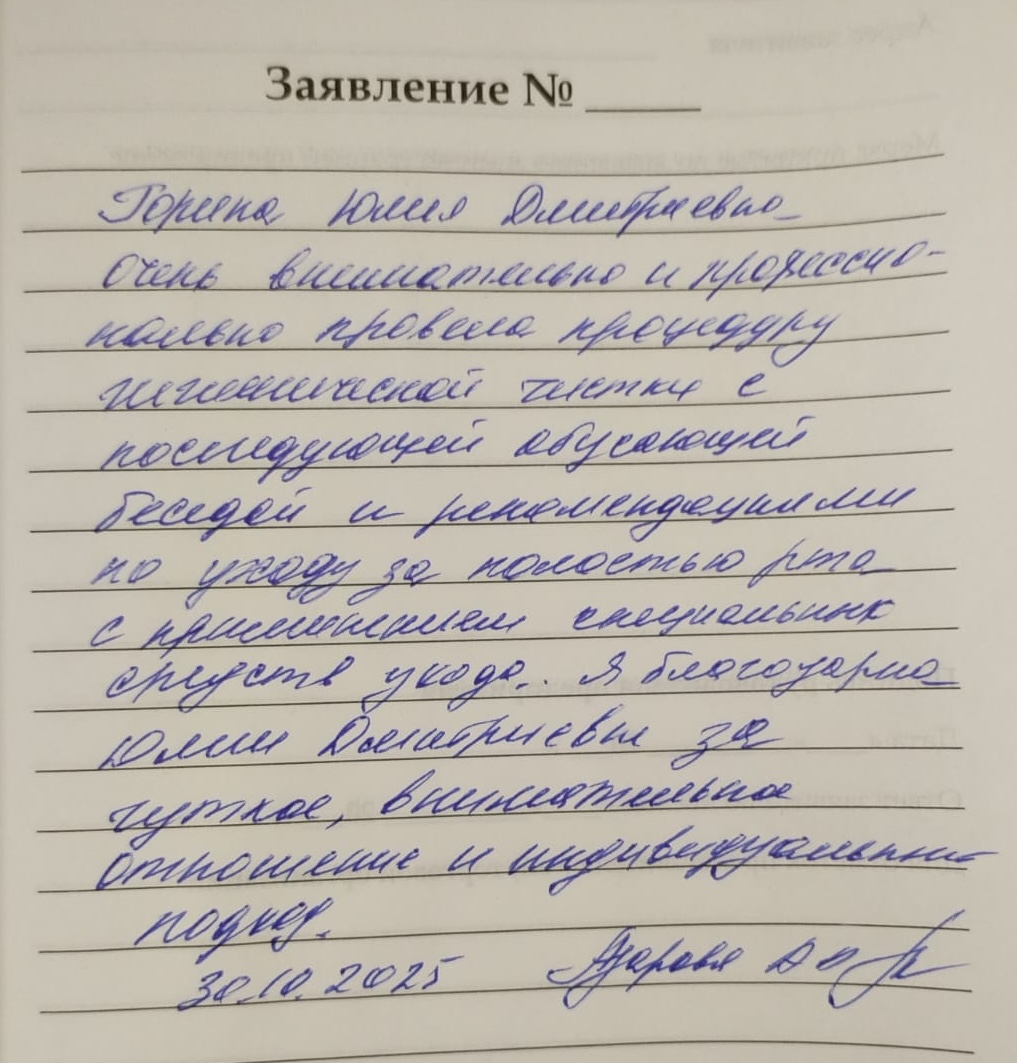 Заявление № ____
Горина Юлия Дмитриевна
очень внимательно и професcио-
нально провела процедуру
гигиенической чистки с
последующей обучающей
беседой и рекомендациями
по уходу за полостью рта
с применением специальных
средств ухода. Я благодарна
Юлии Дмитриевне за
чуткое, внимательное
отношение и индивидуальный
подход.
30.10.2025